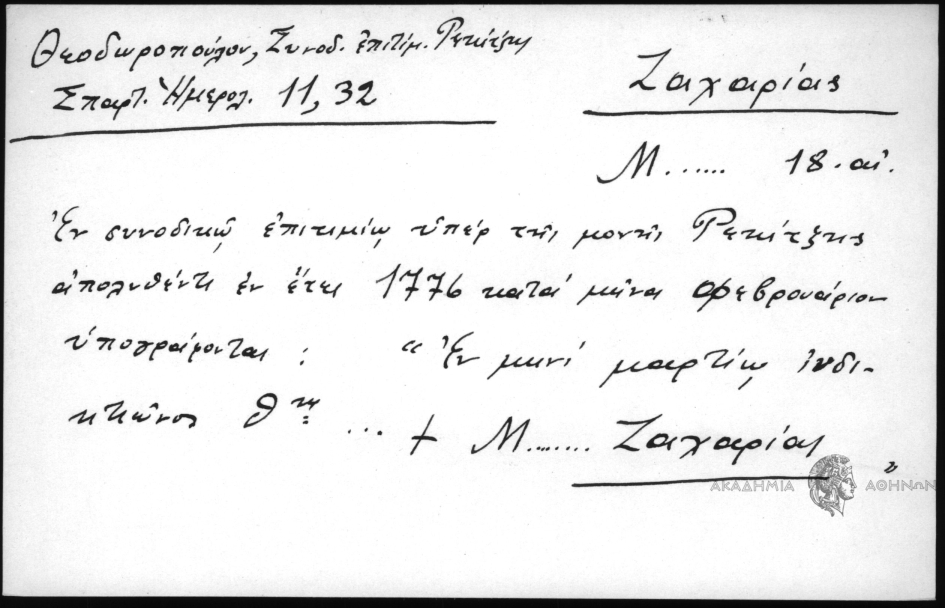 Θεοδωροπούλου, Συνοδ. ἐπιτίμ. Ρεκίτζης
Σπαρτ. Ἡμερολ. 11, 32
Ζαχαρίας
Μ....... 18. αἰ.
Ἐν συνοδικῷ ἐπιτιμίῳ ὑπέρ τῆς μονῆς Ρεκίτζης
ἀπολυθέντι ἐν ἔτει 1776 κατά μῆνα Φεβρουάριον
ὑπογράφονται : "Ἐν μηνί μαρτίῳ ἰνδι-
κτιῶνος θης ... + Μ........ Ζαχαρίας"
ΑΚΑΔΗΜΙΑ ΑΘΗΝΩΝ